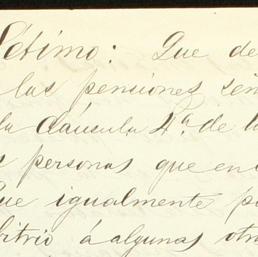 Sétimo: Que de
las pensiones señ
la cláusula 4ª de la
personas que en
que igualmente p
bitrio á algunas otra